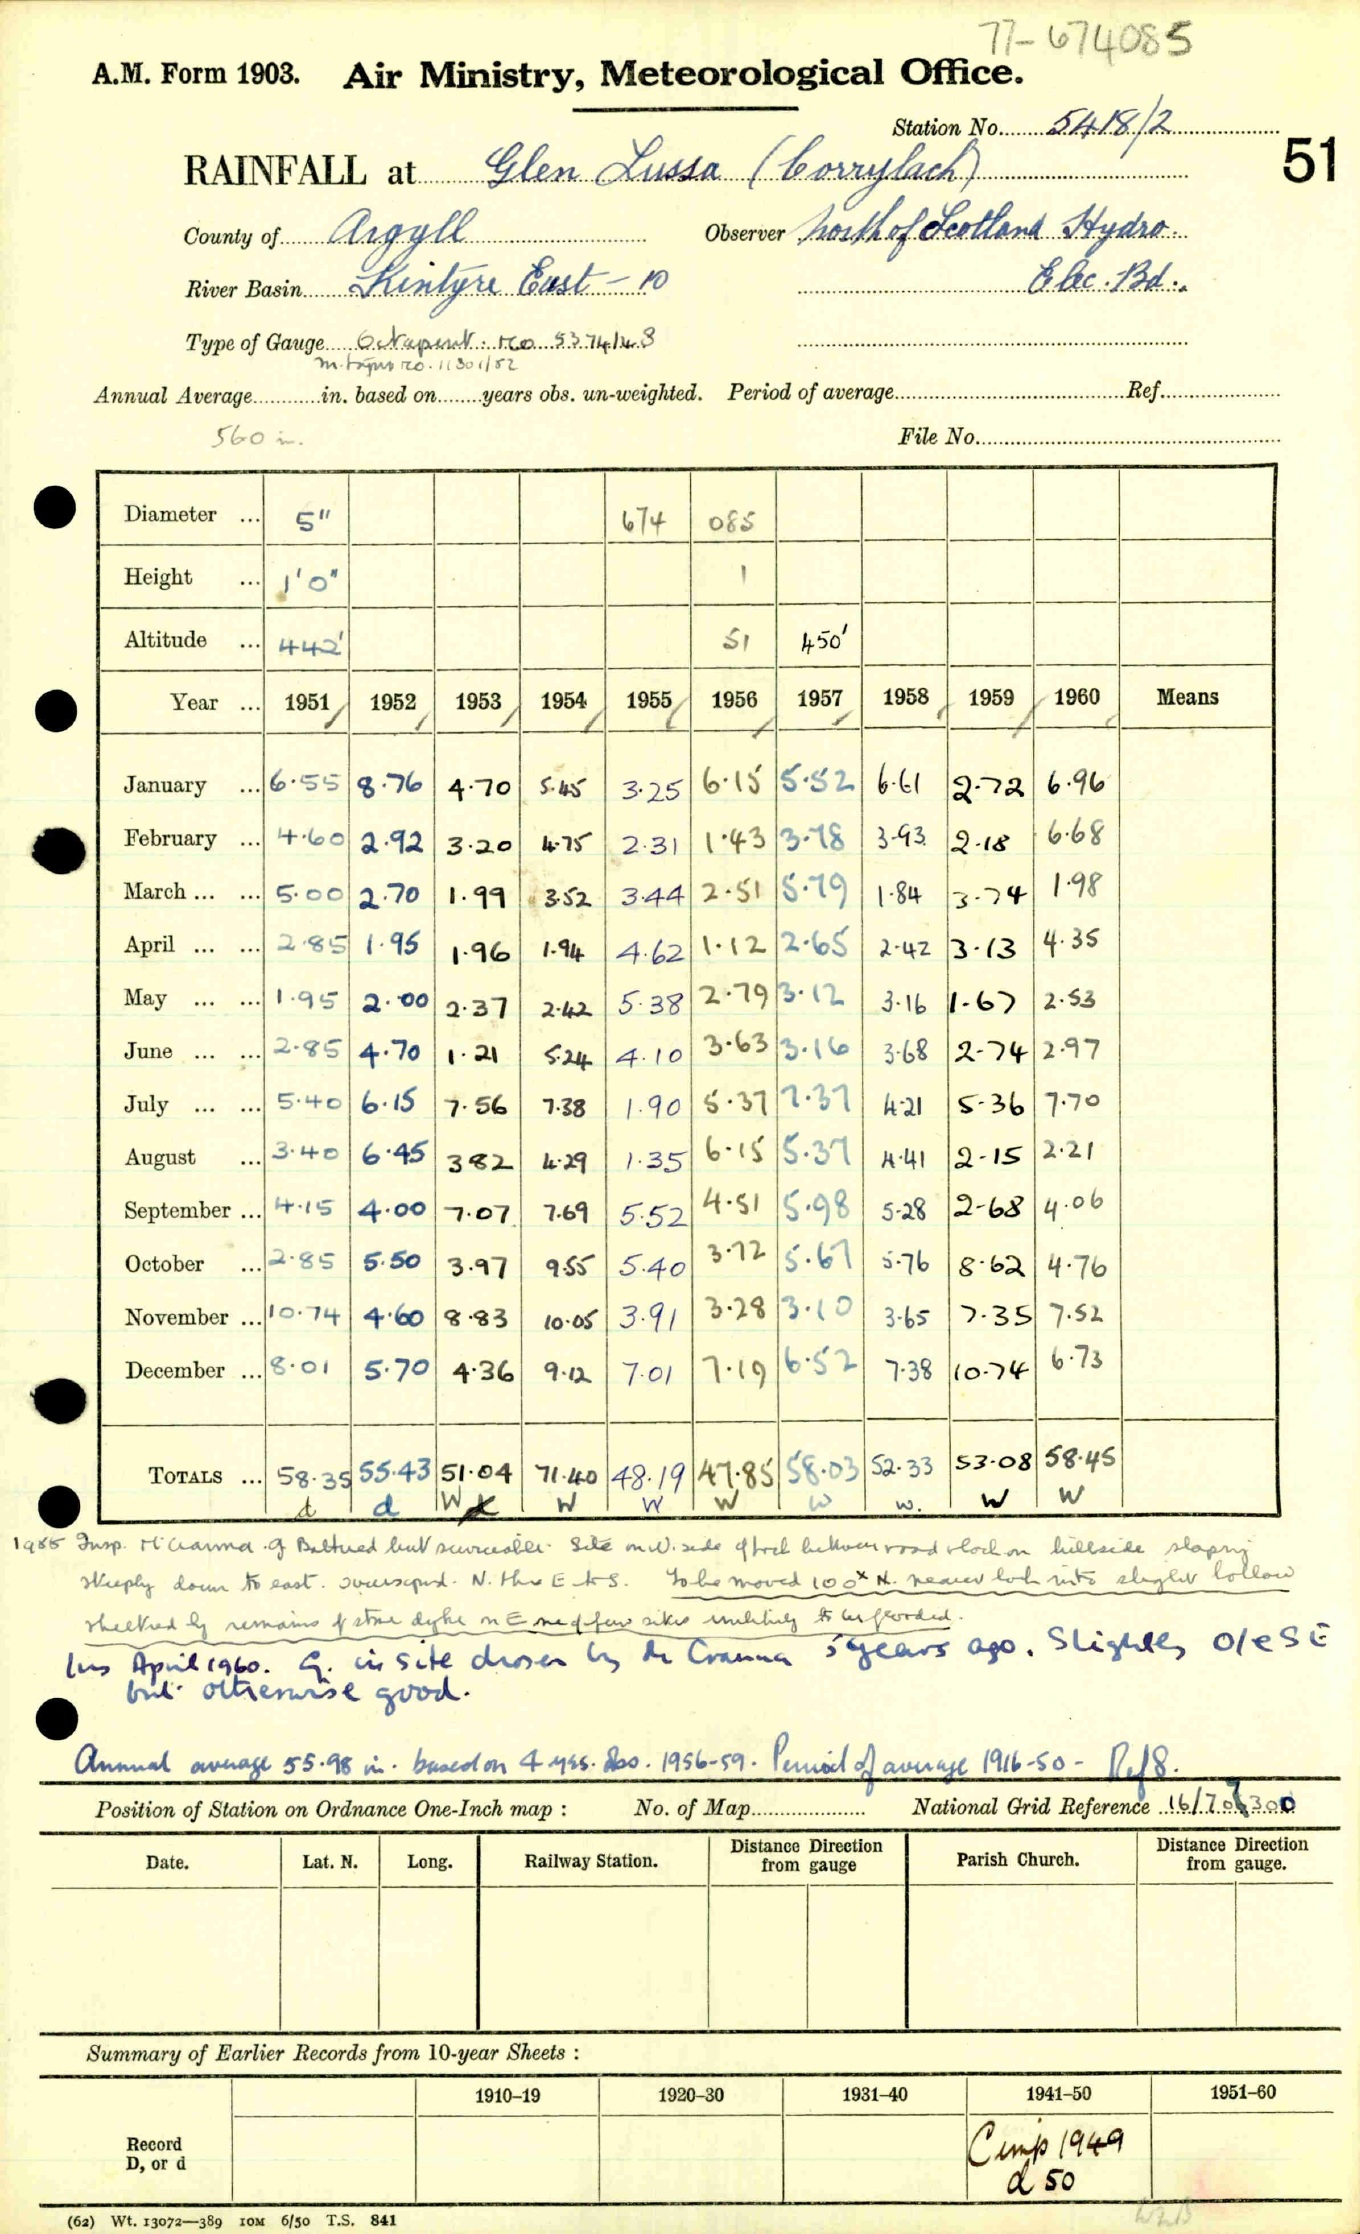 77-674085
A.M. Form 1903. Air Ministry, Meteorological Office.
Station No. 5418/2
51
RAINFALL at Glen Lussa (Corrylach)
County of Argyll Observer North of Scotland Hydro
River Basin Kintyre East - 10 Elec. Bd.
Type of Gauge Octapent. no 5374/48
M. no. 11301/52
Annual Average in. based on years obs. un-weighted. Period of average Ref.
560 in.
File No.
Diameter ... 5" 674 085
Height ... 1'0" 1
Altitude ... 442' 51 450'
Year ... 1951 1952 1953 1954 1955 1956 1957 1958 1959 1960 Means
January ... 6.55 8.76 4.70 5.45 3.25 6.15 5.52 6.61 2.72 6.96
February ... 4.60 2.92 3.20 4.75 2.31 1.43 3.78 3.93 2.18 6.68
March ... ... 5.00 2.70 1.99 3.52 3.44 2.51 5.79 1.84 3.74 1.98
April ... ... 2.85 1.95 1.96 1.94 4.62 1.12 2.65 2.42 3.13 4.35
May ... ... 1.95 2.00 2.37 2.42 5.38 2.79 3.12 3.16 1.67 2.53
June ... ... 2.85 4.70 1.21 5.24 4.10 3.63 3.16 3.68 2.74 2.97
July ... ... 5.40 6.15 7.56 7.38 1.90 5.37 7.37 4.21 5.36 7.70
August ... 3.40 6.45 382 4.29 1.35 6.15 5.37 4.41 2.15 2.21
September ... 4.15 4.00 7.07 7.69 5.52 4.51 5.98 5.28 2.68 4.06
October ... 2.85 5.50 3.97 9.55 5.40 3.72 5.67 5.76 8.62 4.76
November ... 10.74 4.60 8.83 10.05 3.91 3.28 3.10 3.65 7.35 7.52
December ... 8.01 5.70 4.36 9.12 7.01 7.19 6.52 7.38 10.74 6.73
TOTALS ... 58.35 55.43 51.04 71.40 48.19 47.85 58.03 52.33 53.08 58.45
d d W W W W W W. W W
1955 Insp. McCranna. G Battered but serviceable. Site on W. side of loch between road & loch on hillside sloping
steeply down to east. overexposed. N. thro E to S. To be moved 100x N. nearer loch into slight hollow
sheltered by remains of stone dyke on E one of few sites unlikely to be flooded.
Ins April 1960. G. in site chosen by Mr Cranna 5 years ago. Slightly O/e SE
but otherwise good.
Annual average 55.98 in. based on 4 yrs. obs. 1956-59. Period of average 1916-50 - Ref 8.
Position of Station on Ordnance One-Inch map : No. of Map National Grid Reference
Date. Lat. N. Long. Railway Station. Distance from gauge Direction Parish Church. Distance from gauge. Direction
Summary of Earlier Records from 10-year Sheets :
1910-19 1920-30 1931-40 1941-50 1951-60
Record
D, or d
Cmp 1949
d 50
(62) Wt. 13072—389 10M 6/50 T.S. 841